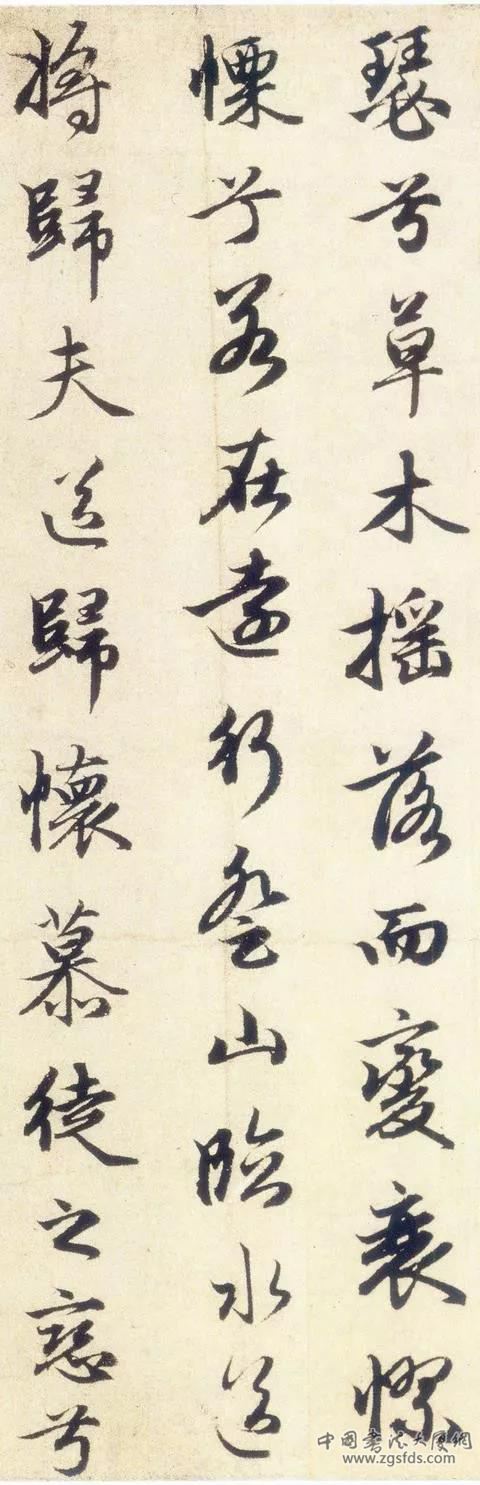 瑟兮草木搖落而變衰憀
慄兮若在遠行登山臨水送
將歸夫送歸懷慕徒之戀兮
中國書法大廈網
www.zgsfds.com